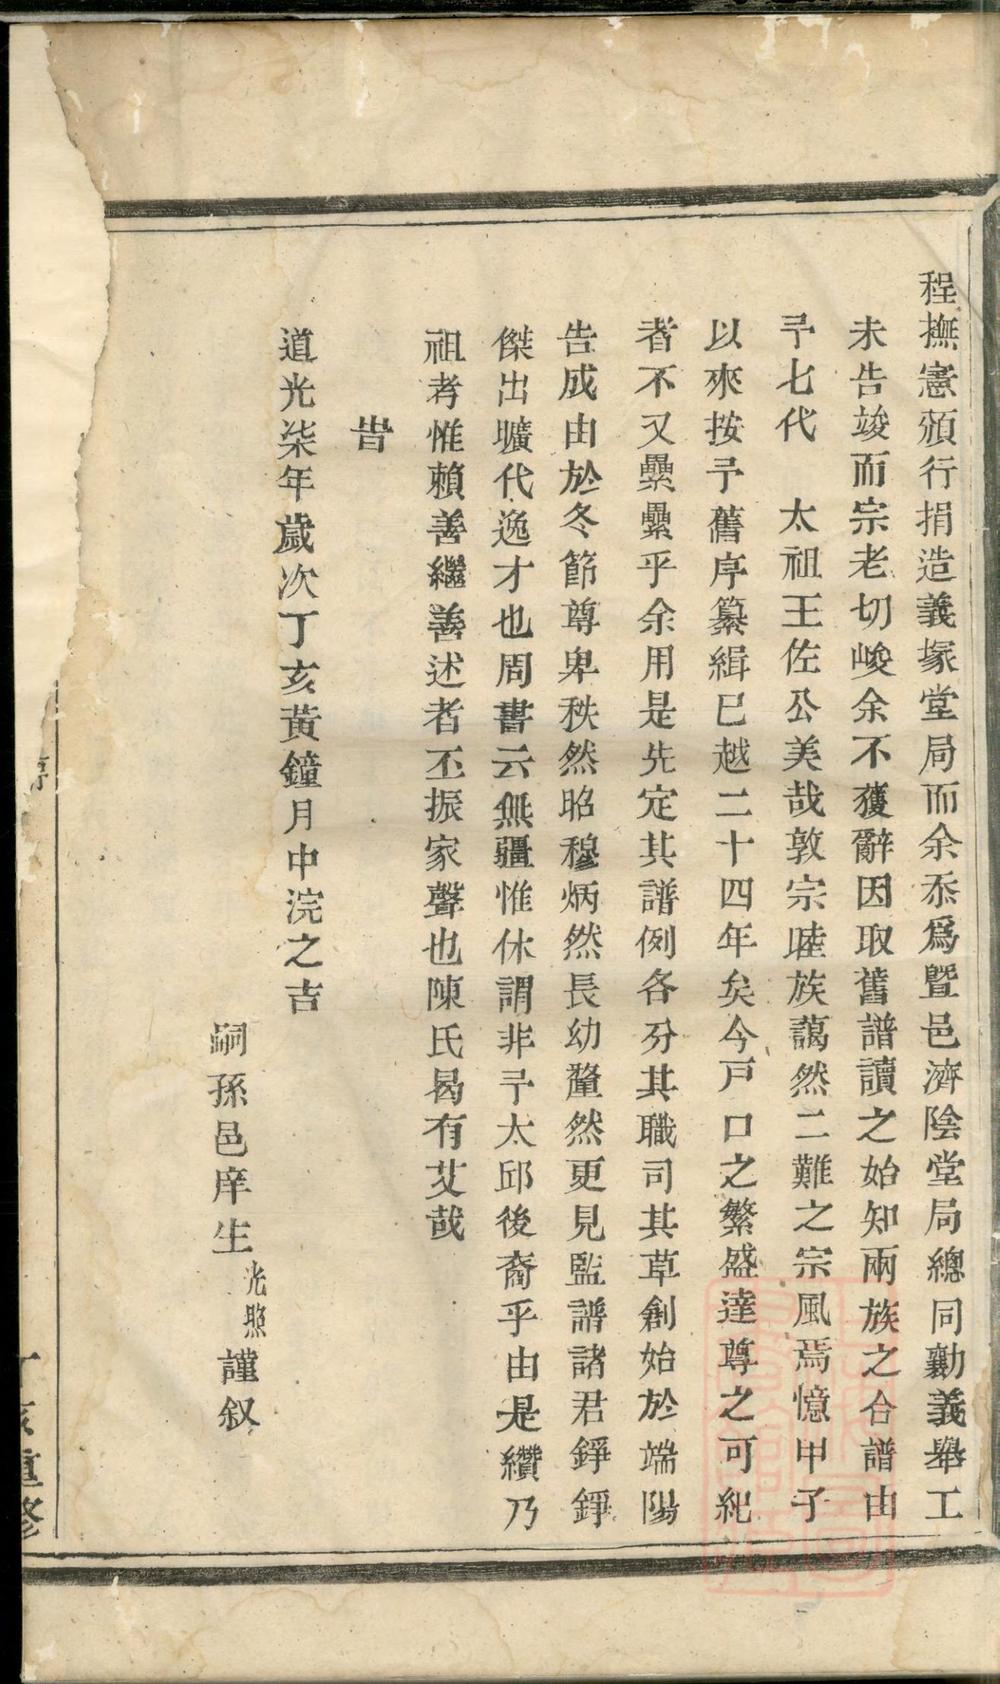 程撫憲頒行捐造義塚堂局而余忝爲暨邑濟陰堂局總同勷義舉工
未告竣而宗老切峻余不獲辭因取舊譜讀之始知兩族之合譜由
予七代　太祖王佐公美哉敦宗睦族藹然二難之宗風焉憶甲子
以來按予舊序纂緝巳越二十四年矣今戸口之繁盛達尊之可紀
者不又纍纍乎余用是先定其譜例各分其職司其草創始於端陽
告成由於冬節尊卑秩然昭穆炳然長幼釐然更見監譜諸君錚錚
傑出曠代逸才也周書云無疆惟休謂非予太邱後裔乎由是纘乃
祖考惟賴善繼善述者丕振家聲也陳氏曷有艾哉
旹
道光柒年歲次丁亥黃鐘月中浣之吉
嗣孫邑庠生光照謹叙
亥重修